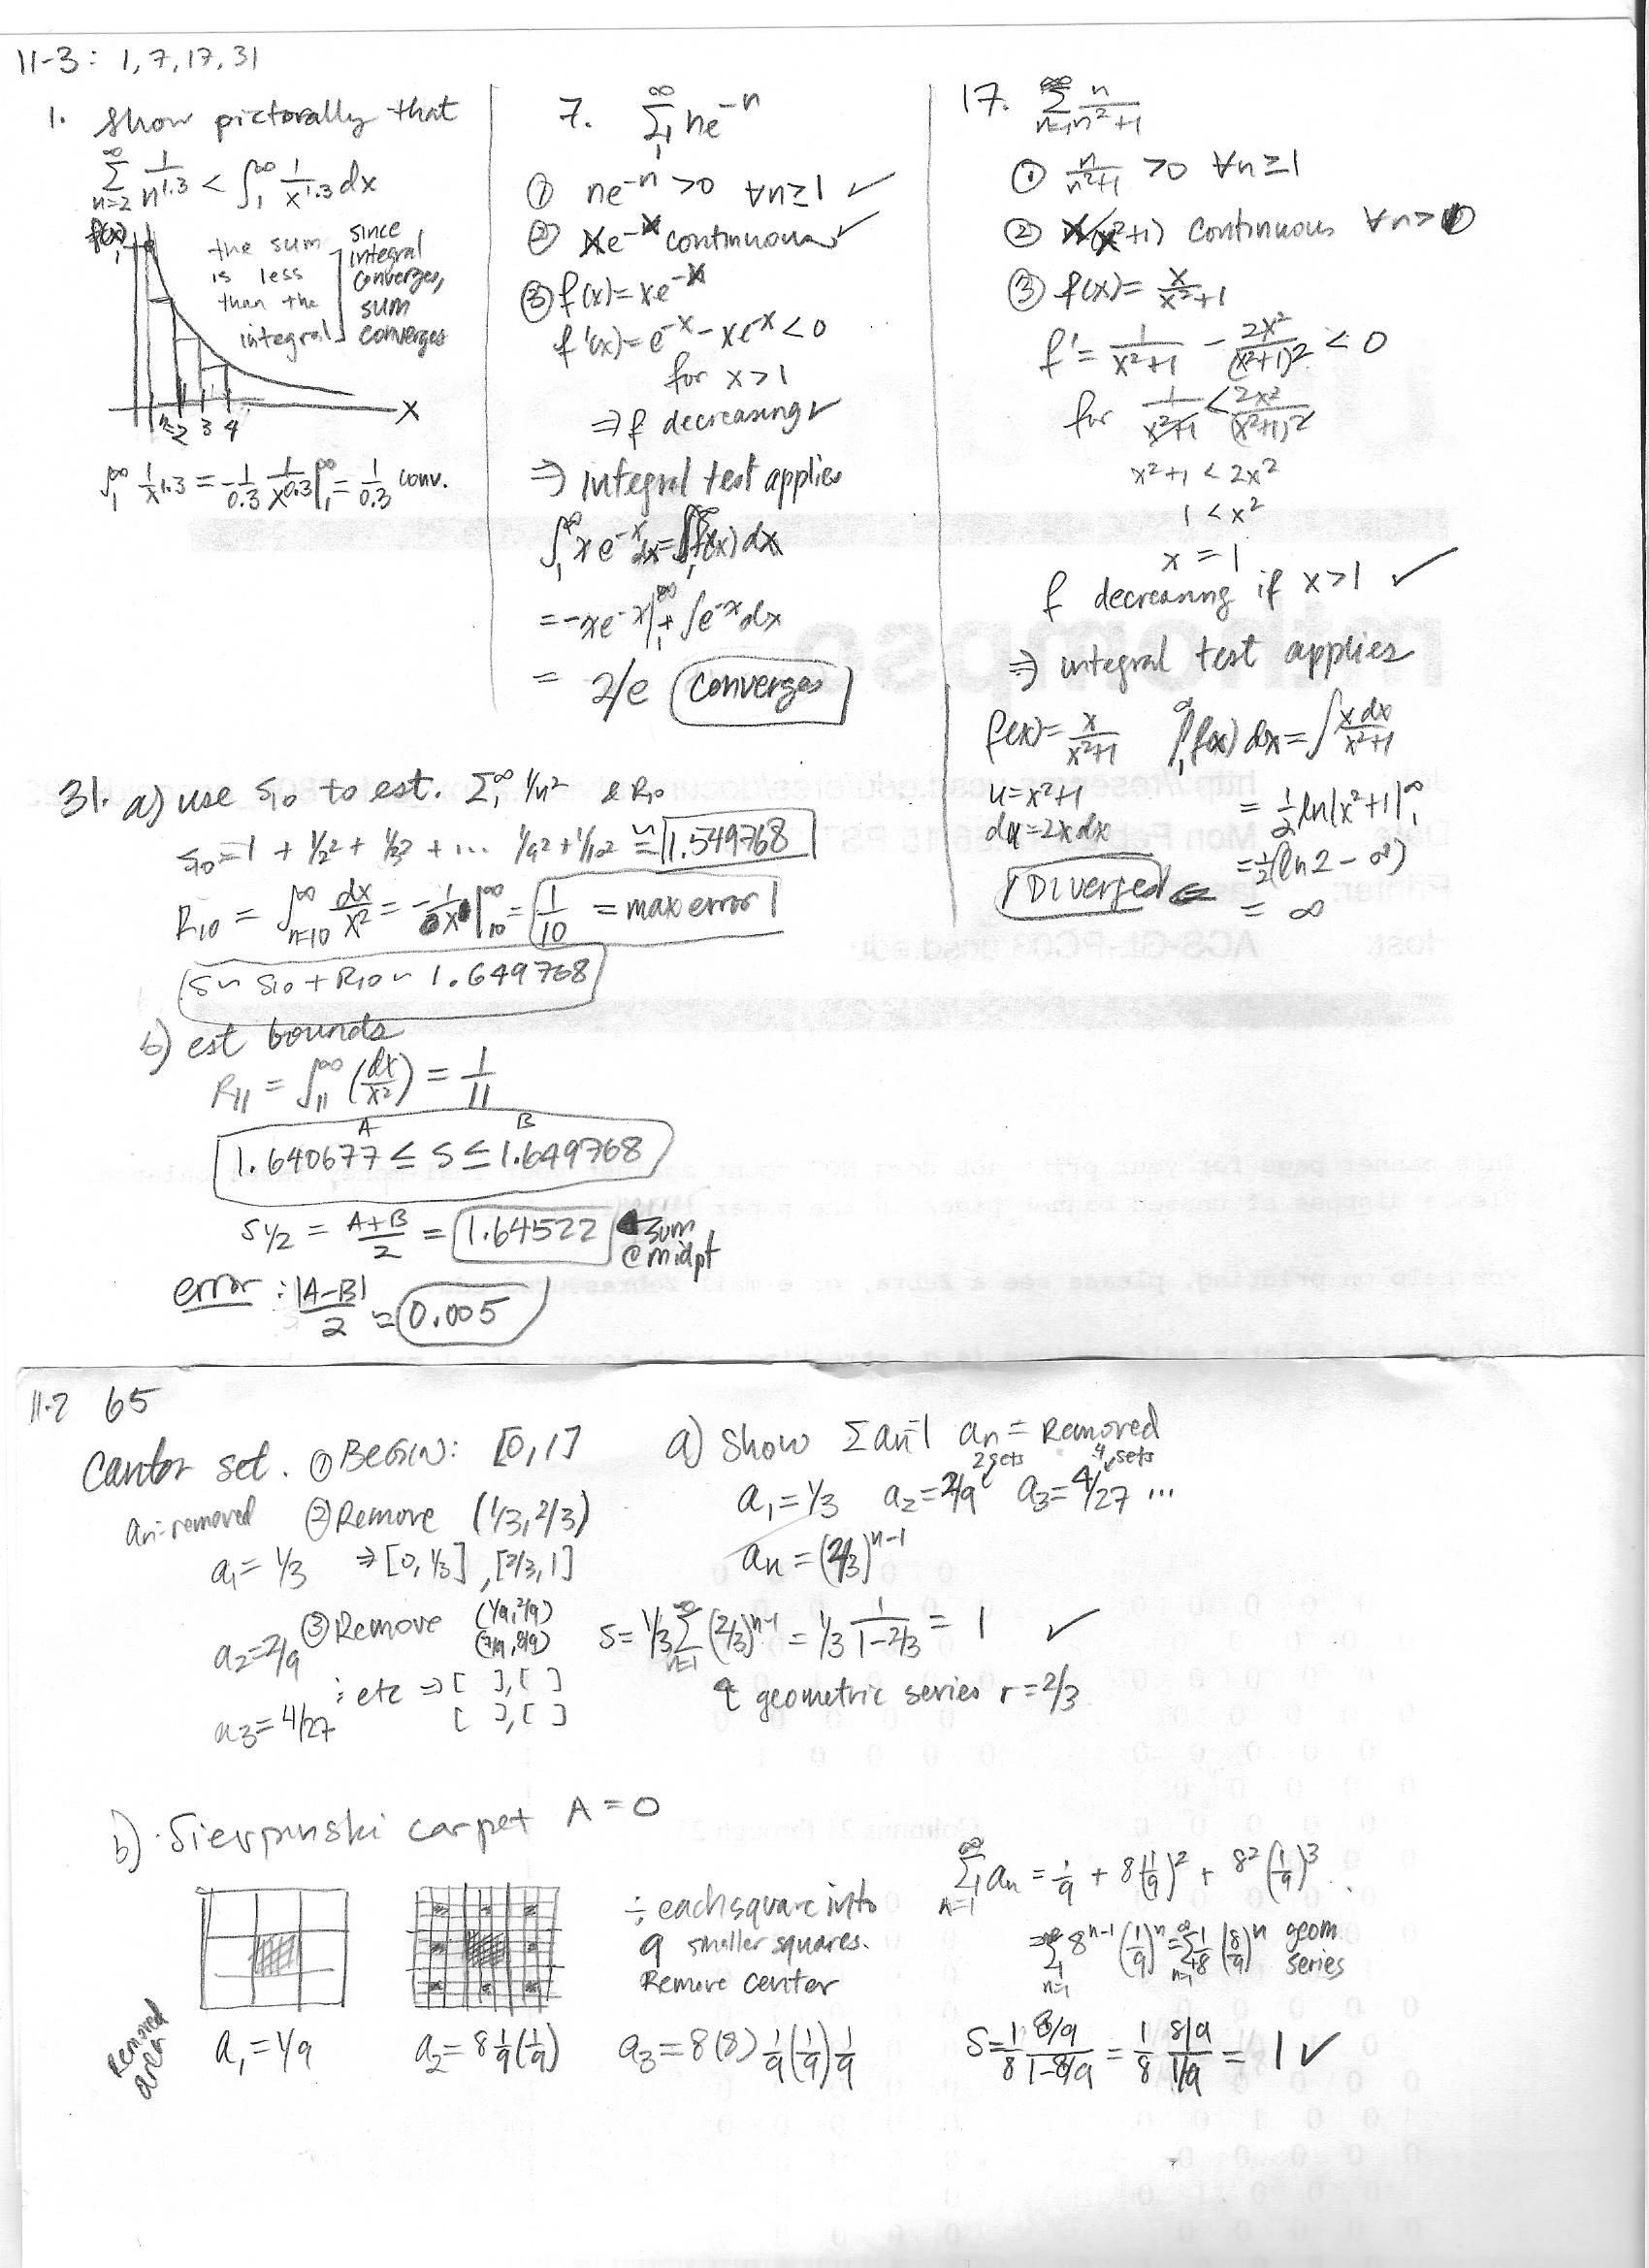 11-3: 1, 7, 17, 31
1. Show pictorally that
∞ Σ n=2 1/n^1.3 < ∫_1^∞ 1/x^1.3 dx
f(x)
the sum is less than the integral
since integral converges, sum converges
n=2 3 4
x
∫_1^∞ 1/x^1.3 = -1/0.3 1/x^0.3 |_1^∞ = 1/0.3 conv.
7. Σ_1^∞ ne^-n
① ne^-n > 0 ∀n≥1 ✓
② xe^-x continuous ✓
③ f(x) = xe^-x
f'(x) = e^-x - xe^-x < 0
for x > 1
⇒ f decreasing ✓
⇒ integral test applies
∫_1^∞ xe^-x dx = ∫_1^∞ f(x) dx
= -xe^-x |_1^∞ + ∫e^-x dx
= 2/e Converges
17. Σ_{n=1}^∞ n/(n²+1)
① n/(n²+1) > 0 ∀n≥1
② x/(x²+1) continuous ∀n>0
③ f(x) = x/(x²+1)
f' = 1/(x²+1) - 2x²/(x²+1)² < 0
for 1/(x²+1) < 2x²/(x²+1)²
x²+1 < 2x²
1 < x²
x = 1
f decreasing if x>1 ✓
⇒ integral test applies
f(x) = x/(x²+1) ∫_1^∞ f(x) dx = ∫ x dx/(x²+1)
u = x²+1
du = 2x dx
= 1/2 ln|x²+1| |_1^∞
= 1/2 (ln 2 - ∞)
= ∞
Diverges ⇐
31. a) use S10 to est. Σ_1^∞ 1/n² & R10
S10 = 1 + 1/2² + 1/3² + ... 1/9² + 1/10² ≈ 1.549768
R10 = ∫_{n=10}^∞ dx/x² = -1/x |_10^∞ = 1/10 = max error
S ~ S10 + R10 ~ 1.649768
b) est bounds
R11 = ∫_11^∞ (dx/x²) = 1/11
A B
1.640677 ≤ S ≤ 1.649768
S1/2 = (A+B)/2 = 1.64522 ← sum @ midpt
error: |A-B|/2 ≈ 0.005
11-2 65
Cantor set. ① BEGIN: [0,1]
an = removed ② Remove (1/3, 2/3)
a1 = 1/3 ⇒ [0, 1/3], [2/3, 1]
③ Remove (1/9, 2/9) (7/9, 8/9)
a2 = 2/9
⋮ etc ⇒ [ ], [ ]
[ ], [ ]
a3 = 4/27
a) Show Σan = 1 an = Removed
2 sets 4 sets
a1 = 1/3 a2 = 2/9 a3 = 4/27 ...
an = (2/3)^n-1
S = 1/3 Σ_{n=1}^∞ (2/3)^n-1 = 1/3 1/(1-2/3) = 1 ✓
geometric series r = 2/3
b) Sierpinski carpet A = 0
÷ each square into
9 smaller squares.
Remove center
Removed area
a1 = 1/9 a2 = 8 1/9 (1/9) a3 = 8(8) 1/9 (1/9) 1/9
Σ_{n=1}^∞ an = 1/9 + 8(1/9)² + 8²(1/9)³ ..
= Σ_{n=1}^∞ 8^n-1 (1/9)^n = Σ_{n=1}^∞ 1/8 (8/9)^n geom series
S = 1/8 (8/9)/(1-8/9) = 1/8 (8/9)/(1/9) = 1 ✓